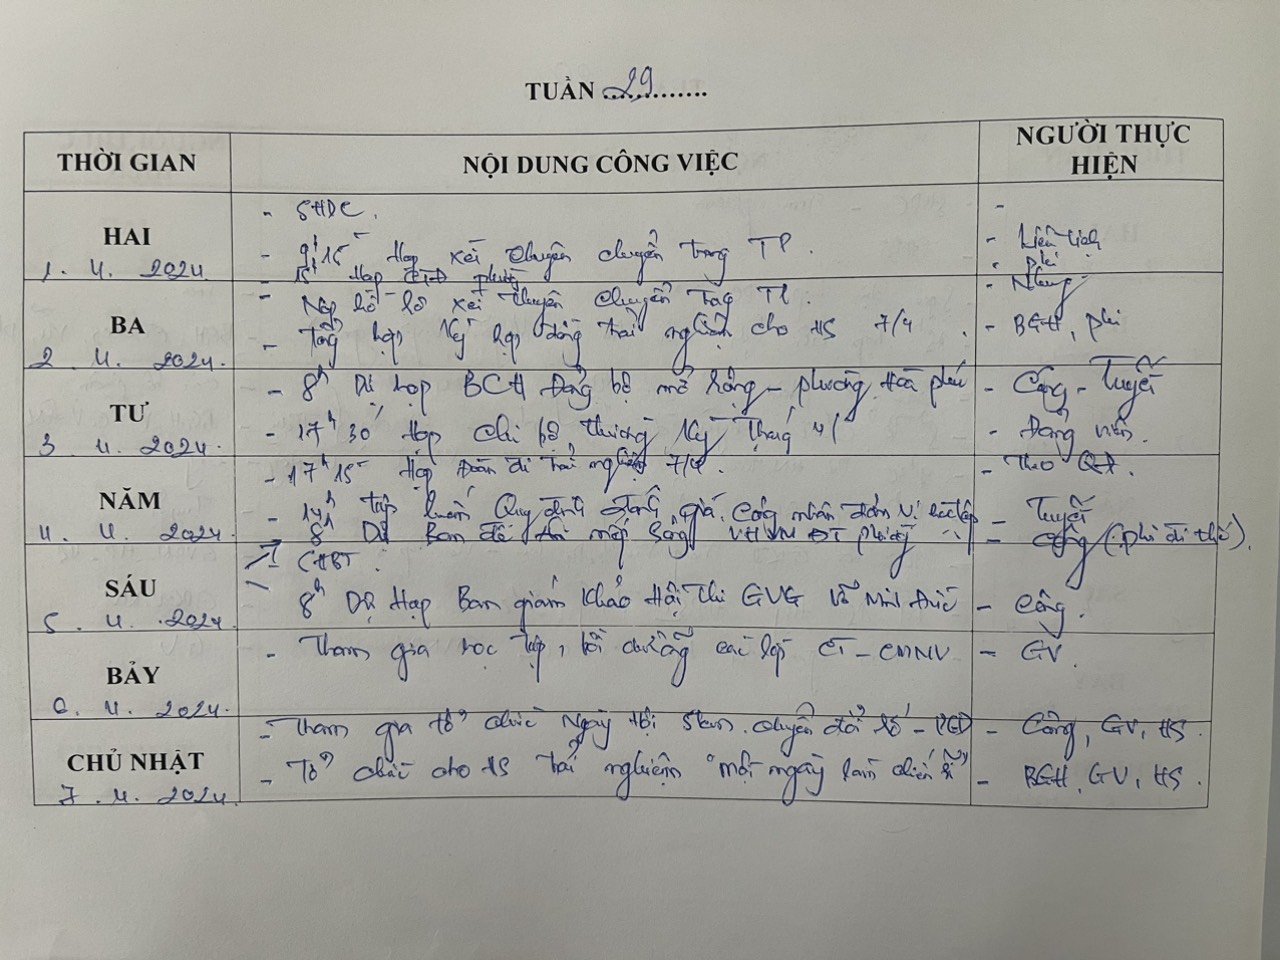 TUẦN 29
THỜI GIAN NỘI DUNG CÔNG VIỆC NGƯỜI THỰC HIỆN
HAI
1. 4. 2024
- SHDC.
- 9h15 Họp xét thuyên chuyển trong TP.
- 15h Họp phường
-
- Liên tịch
- Phi
BA
2. 4. 2024
- Nộp hồ sơ xét thuyên chuyển trong TP.
- Tổng hợp Ký hợp đồng trải nghiệm cho HS 7/4.
- Nhung
- BGH, Phi
TƯ
3. 4. 2024
- 8h Dự họp BCH Đảng bộ mở rộng - phường Hoà phú
- 17h30 Họp Chi bộ thường Kỳ Tháng 4/
- Công - Tuyết
- Đảng viên.
NĂM
4. 4. 2024
- 17h15 Họp Đoàn đi trải nghiệm 7/4.
- 14h tập huấn Quy định đánh giá, công nhân đơn vị học tập
- 8h Dự Ban đề án nếp sống VHVM ĐT phường
- Theo QĐ.
- Tuyết
- Công (Phi đi thế).
SÁU
5. 4. 2024
- CHBT.
- 8h Dự Họp Ban giám Khảo Hội Thi GVG Võ Minh Đức
- Công.
BẢY
6. 4. 2024
- Tham gia học tập, bồi dưỡng các lớp CT - CMNV
- GV.
CHỦ NHẬT
7. 4. 2024
- Tham gia tổ chức Ngày Hội Stem. chuyển đổi số - PGD
- Tổ chức cho HS trải nghiệm "một ngày làm chiến sĩ"
- Công, GV, HS.
- BGH, GV, HS.